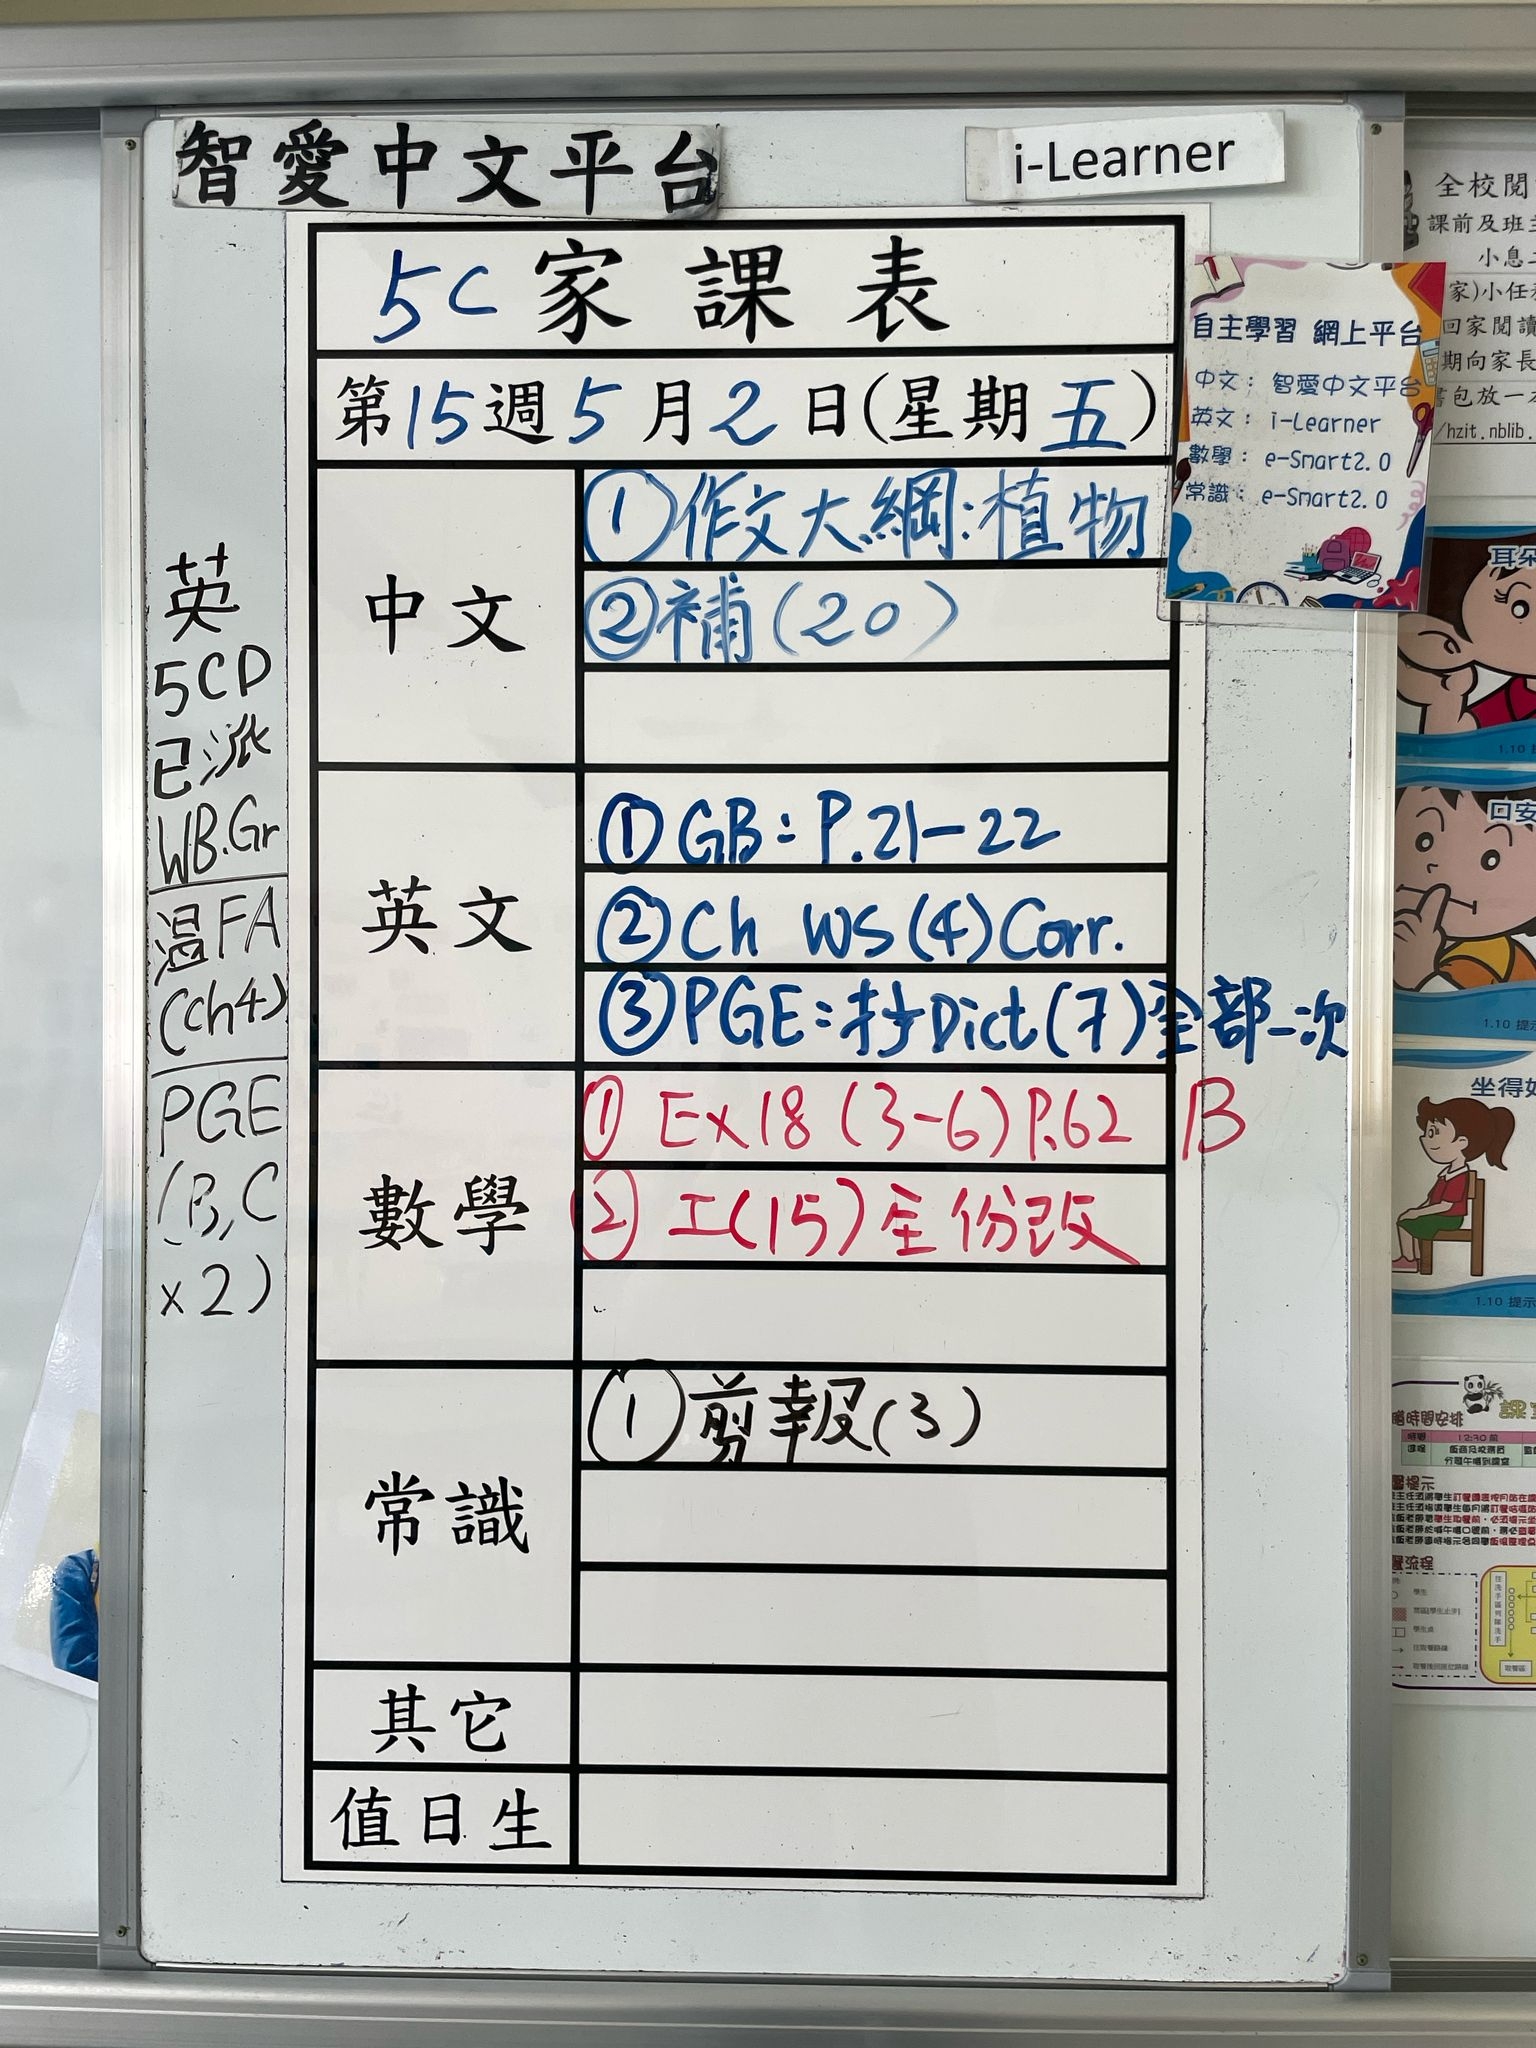 智愛中文平台
i-Learner
5C家課表
第15週5月2日(星期五)
中文
①作文大綱:植物
②補(20)
英文
①GB:P.21-22
②Ch WS(4)Corr.
③PGE:抄Dict(7)全部一次
數學
① Ex18(3-6)P.62 B
② 工(15)全份改
常識
①剪報(3)
其它
值日生
英
5CD
已派
WB.Gr
溫FA
(Ch4)
PGE
(B,C
x2)
自主學習 網上平台
中文: 智愛中文平台
英文: i-Learner
數學: e-Smart2.0
常識: e-Smart2.0
全校閱
課前及班主
小息
家)小任務
回家閱讀
期向家長
書包放一本
/hzit.nblib.
耳朵
1.10 提
口安
1.10 提示
坐得好
1.10 提示
時間安排
時間
12:30 前
提示
流程
學生